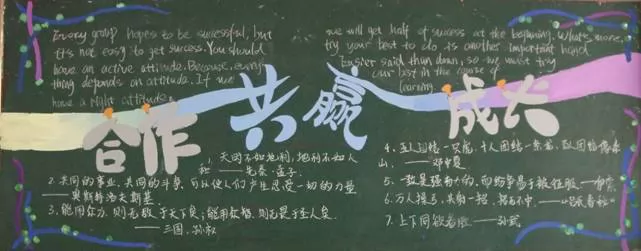 Every group hopes to be successful, but
it's not easy to get success. You should
have an active attitude. Because, every
thing depends on attitude. If we
have a right attitude,
we will get half of success at the beginning. What's more,
try your best to do is another important hand.
Easier said than down, so we must try
our best in the course of
learning.
合作 共赢 成长
1、天时不如地利,地利不如人
和 ——先秦·孟子
2、共同的事业,共同的斗争,可以使人们产生忍受一切的力量
——奥斯特洛夫斯基
3、能用众力,则无敌于天下矣;能用众智,则无畏于圣人矣
——三国·孙权
4、五人团结一只虎,十人团结一条龙,百人团结像泰
山。——邓中夏
5、一致是强有力的,而纷争易于被征服——伊索
6、万人操弓,共射一招,招无不中——吕氏春秋
7、上下同欲者胜——孙武